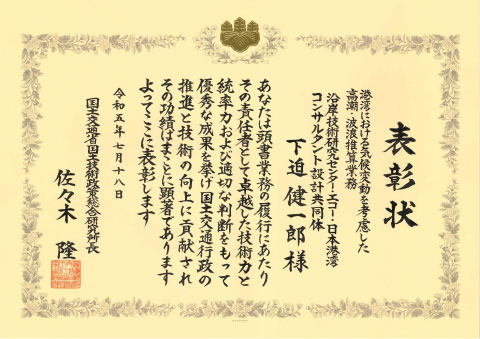 表彰状
港湾における気候変動を考慮した
高潮・波浪推算業務
沿岸技術研究センター・エコー・日本港湾
コンサルタント設計共同体
下迫 健一郎 様
あなたは頭書業務の履行にあたり
その責任者として卓越した技術力と
統率力および適切な判断をもって
優秀な成果を挙げ国土交通行政の
推進と技術の向上に貢献され
その功績はまことに顕著であります
よってここに表彰します
令和五年七月十八日
国土交通省国土技術政策総合研究所長
佐々木 隆